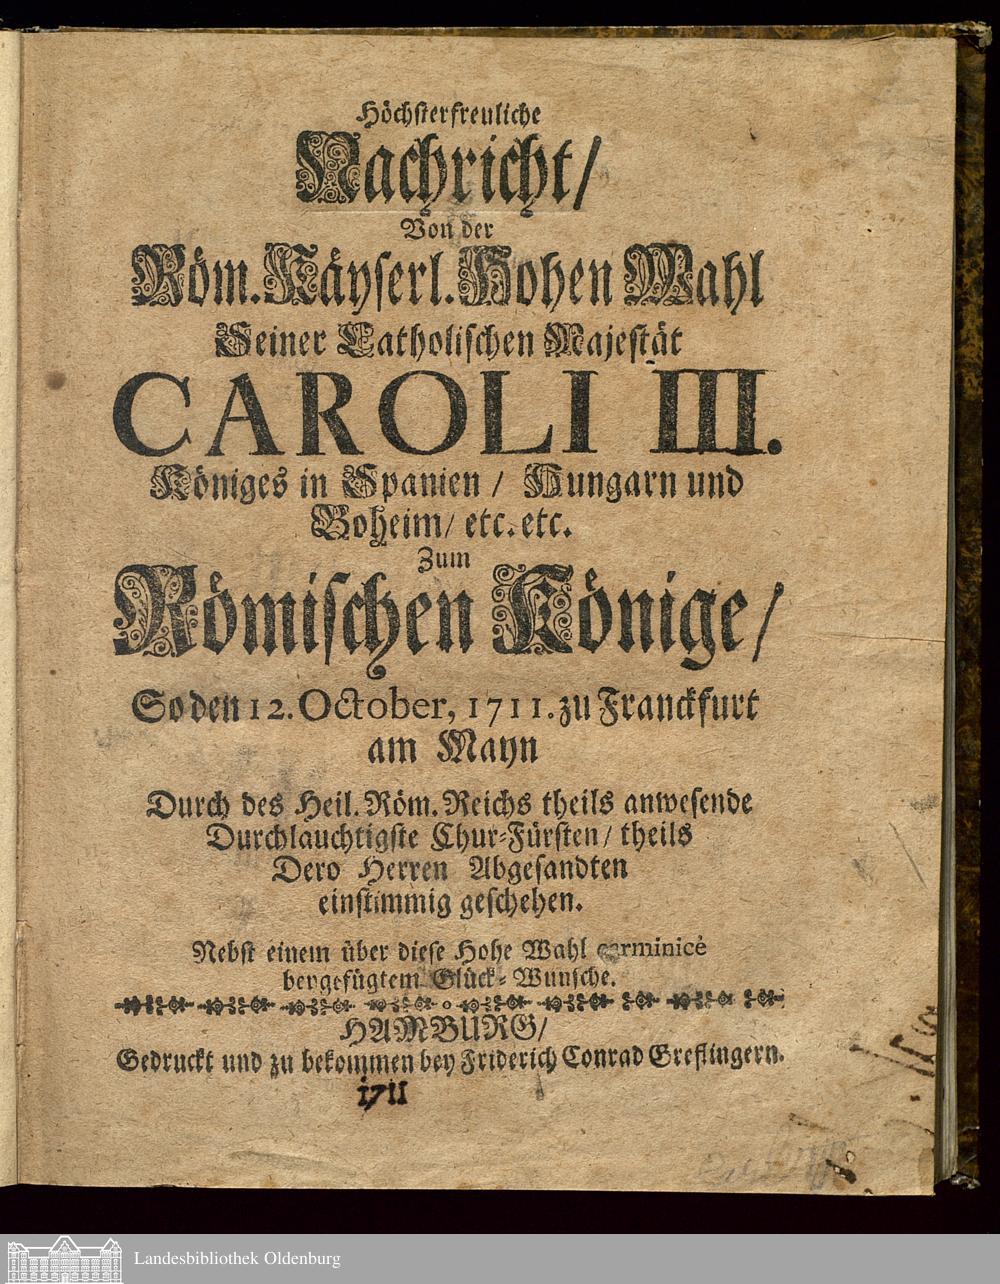 Höchsterfreuliche
Nachricht/
Von der
Röm. Käyserl. Hohen Wahl
Seiner Catholischen Majestät
CAROLI III.
Königes in Spanien / Hungarn und
Boheim/ etc. etc.
Zum
Römischen Könige/
So den 12. October, 1711. zu Franckfurt
am Mayn
Durch des Heil. Röm. Reichs theils anwesende
Durchlauchtigste Chur-Fürsten/ theils
Dero Herren Abgesandten
einstimmig geschehen.
Nebst einem über diese Hohe Wahl carminicè
beygefügtem Glück-Wunsche.
HAMBURG/
Gedruckt und zu bekommen bey Friderich Conrad Greflingern.
1711
Landesbibliothek Oldenburg